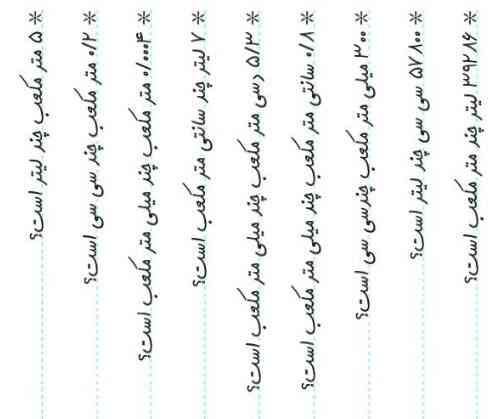 * ۵ متر مکعب چند لیتر است؟
* ۰/۲ متر مکعب چند سی سی است؟
* ۰/۰۰۰۴ متر مکعب چند میلی متر مکعب است؟
* ۷ لیتر چند سانتی متر مکعب است؟
* ۵/۳ دسی متر مکعب چند میلی متر مکعب است؟
* ۰/۸ سانتی متر مکعب چند میلی متر مکعب است؟
* ۳۰۰ میلی متر مکعب چندسی سی است؟
* ۵۷۸۰۰ سی سی چند لیتر است؟
* ۳۹۲۸۶ لیتر چند متر مکعب است؟